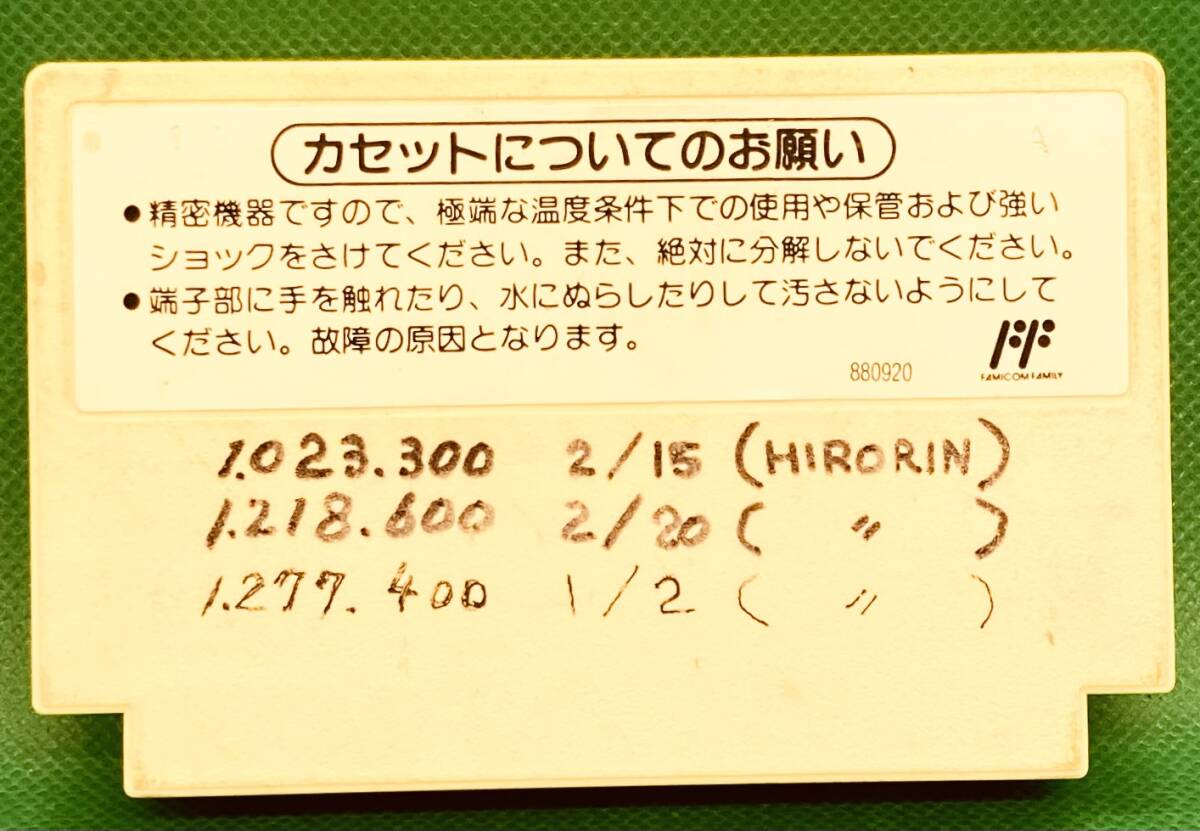 カセットについてのお願い
●精密機器ですので、極端な温度条件下での使用や保管および強い
ショックをさけてください。また、絶対に分解しないでください。
●端子部に手を触れたり、水にぬらしたりして汚さないようにして
ください。故障の原因となります。
880920
FAMICOM FAMILY
1.023.300 2/15 (HIRORIN)
1.218.600 2/20 ( 〃 )
1.277.400 1/2 ( 〃 )